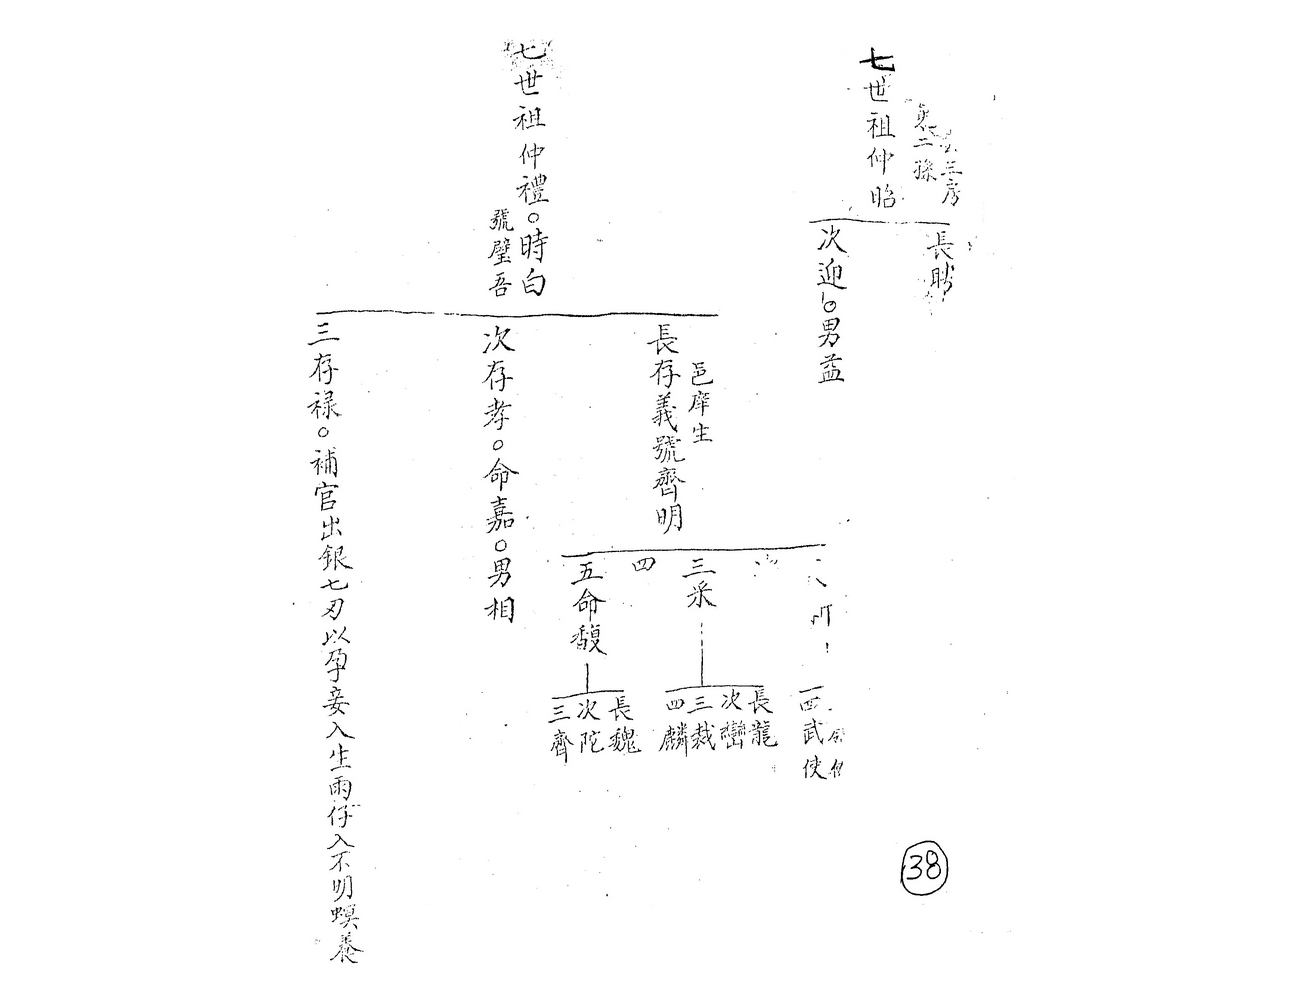 三房
二孫
七世祖仲昭
長
次迎○男益
七世祖仲禮○時白
號璧吾
邑庠生
長存義號齊明
次存孝○命嘉○男相
三存禄○補官出銀七刃以孕妾入生兩仔入不明螟養
三采
四
五命馥
四武使
長龍
次巒
三裁
四麟
長魏
次陀
三齊
38